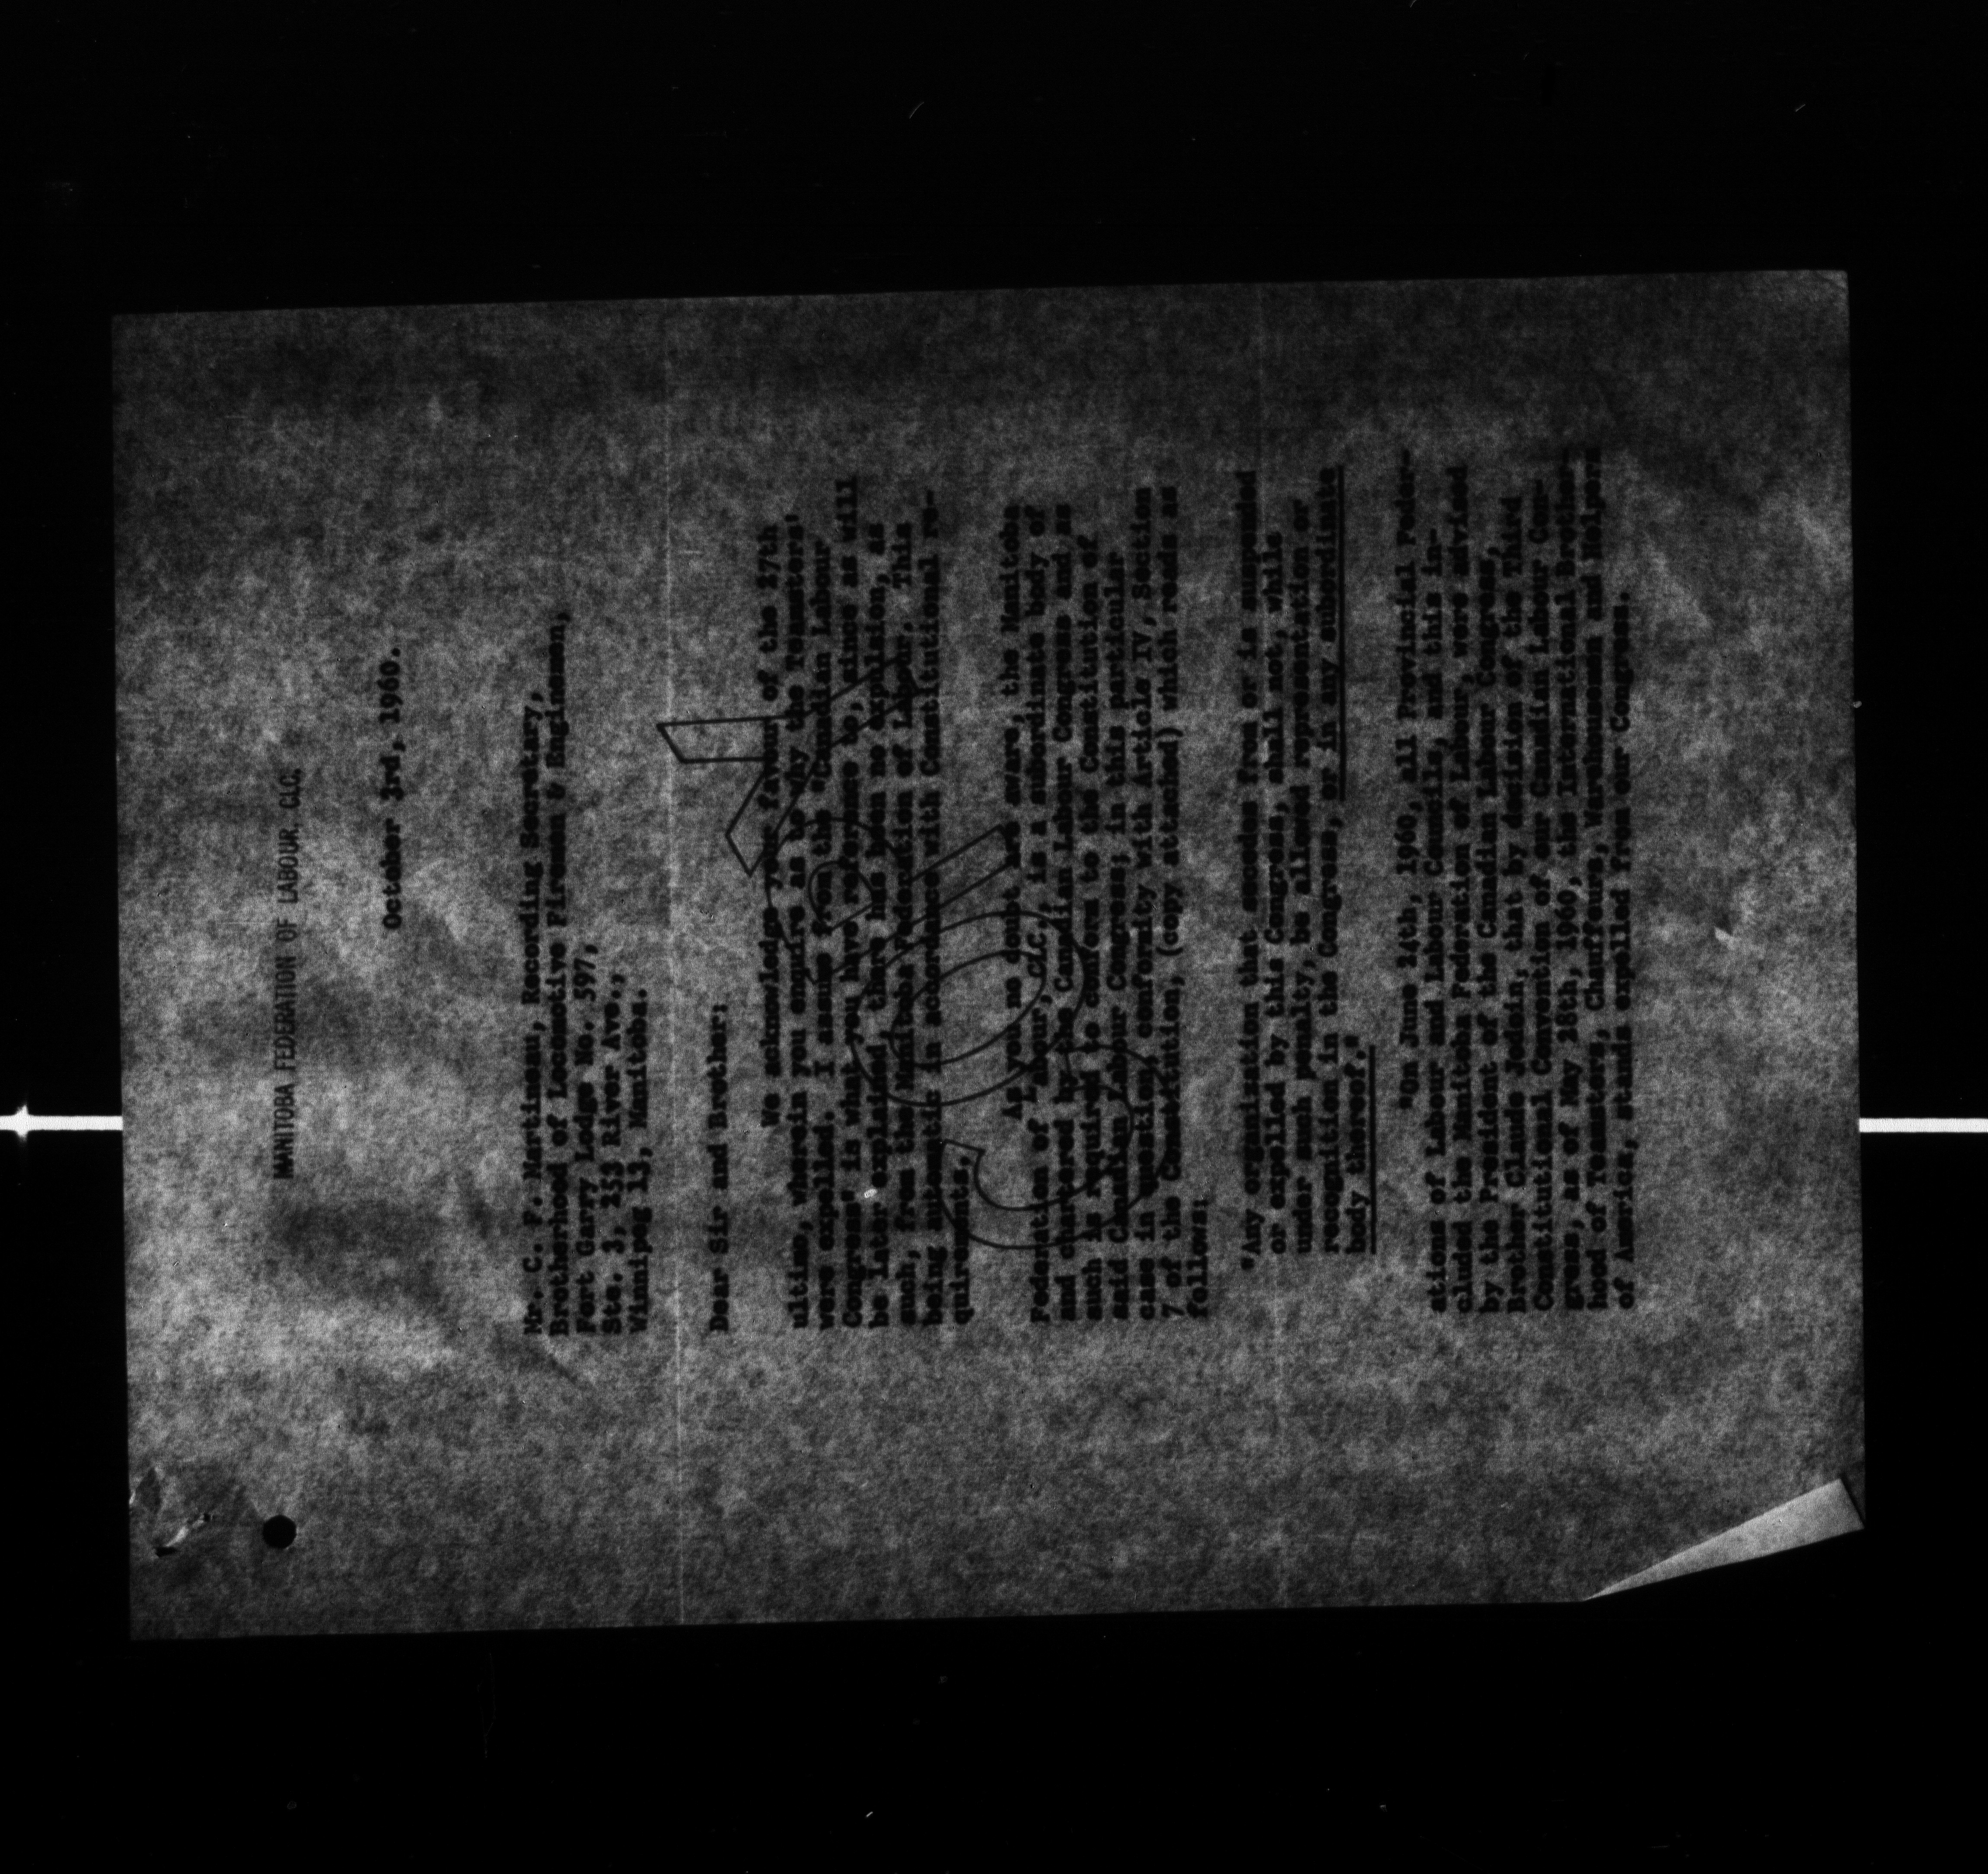 MANITOBA FEDERATION OF LABOUR. CLC.
October 3rd, 1960.
Mr. C. F. Martineau, Recording Secretary,
Brotherhood of Locomotive Firemen & Enginemen,
Fort Garry Lodge No. 597,
Ste. 3, 253 River Ave.,
Winnipeg 13, Manitoba.
Dear Sir and Brother:
We acknowledge your favour of the 27th
ultimo, wherein you enquire as to why the Teamsters,
were expelled. I assume from the "Canadian Labour
Congress" is what you have reference to, since as will
be later explained, there has been no expulsion, as
such, from the Manitoba Federation of Labour. This
being automatic in accordance with Constitutional re-
quirements.
As you no doubt are aware, the Manitoba
Federation of Labour, C.C., is a subordinate body of
and chartered by the Canadian Labour Congress and as
such is required to conform to the Constitution of
said Canadian Labour Congress; in this particular
case in question, conformity with Article IV, Section
7 of the Constitution, (copy attached) which reads as
follows:
"Any organization that secedes from or is suspended
or expelled by this Congress, shall not, while
under such penalty, be allowed representation or
recognition in the Congress, or in any subordinate
body thereof."
"On June 24th, 1960, all Provincial Feder-
ations of Labour and Labour Councils, and this in-
cluded the Manitoba Federation of Labour, were advised
by the President of the Canadian Labour Congress,
Brother Claude Jodoin, that by decision of the Third
Constitutional Convention of our Canadian Labour Con-
gress, as of May 28th, 1960, the International Brother-
hood of Teamsters, Chauffeurs, Warehousemen and Helpers
of America, stands expelled from our Congress.
COPY